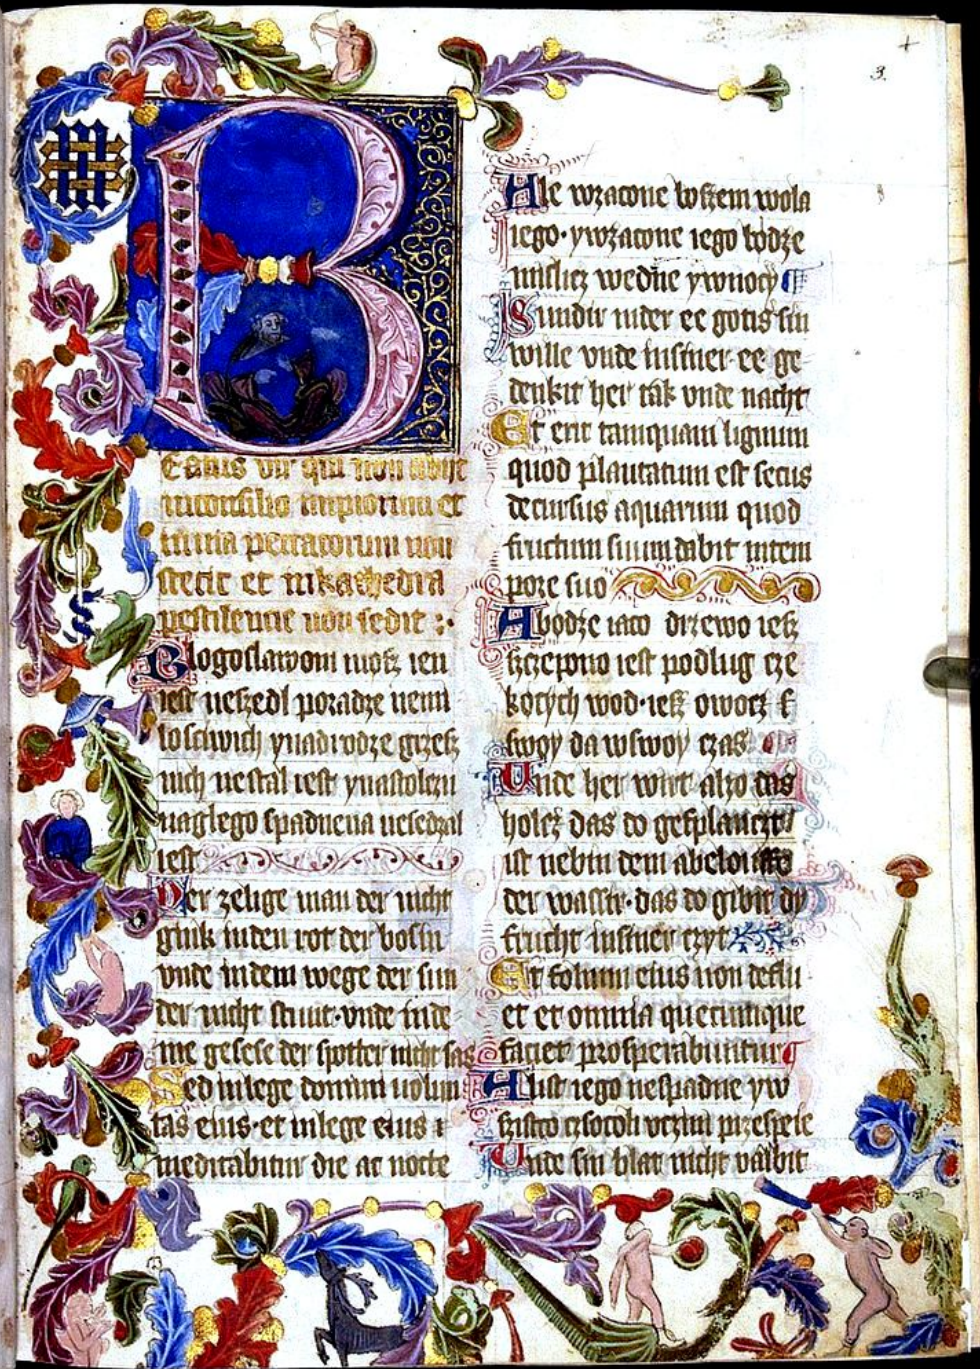 3.
Beatus vir qui non abijt
in consilio impiorum et
in via peccatorum non
stetit et in kathedra
pestilencie non sedit :·
Blogoslawoni møsz ien
iest neszedl poradze nemi
losciwich ynadrodze grzesz
nich nestal iest ynastolczu
naglego spadnena nesedzal
iest
Der zelige man der nicht
gink inden rot der bosin
vnde indem wege der sun
der nicht stunt·vnde inde
me gesese der spotter nicht sas
Sed inlege domini uolun
tas eius·et inlege eius
meditabitur die ac nocte
Ale wzacone boszem wola
iego·ywzacone iego bødze
misliez wedne ywnocy
Sundir inder ee gotis sin
wille vnde insiner ee ge
denkit her tak vnde nacht
Et erit tamquam lignum
quod plantatum est secus
decursus aquarum quod
fructum suum dabit intem
pore suo
Abødze iaco drzewo iesz
szczepono iest podlug cze
kocych wod·iesz owocz
swoy da wswoy czas
Vnde her wirt alzo das
holcz das do gesplanczt
ist nebin dem abeloufe
der wassir·das do gibit dy
frucht insiner czyt
Et folium eius non deflu
et et omnia quecumque
faciet prosperabuntur
Alist iego nespadne yw
szistco czsocoli vczini przespeie
Vnde sin blat nicht vălbit